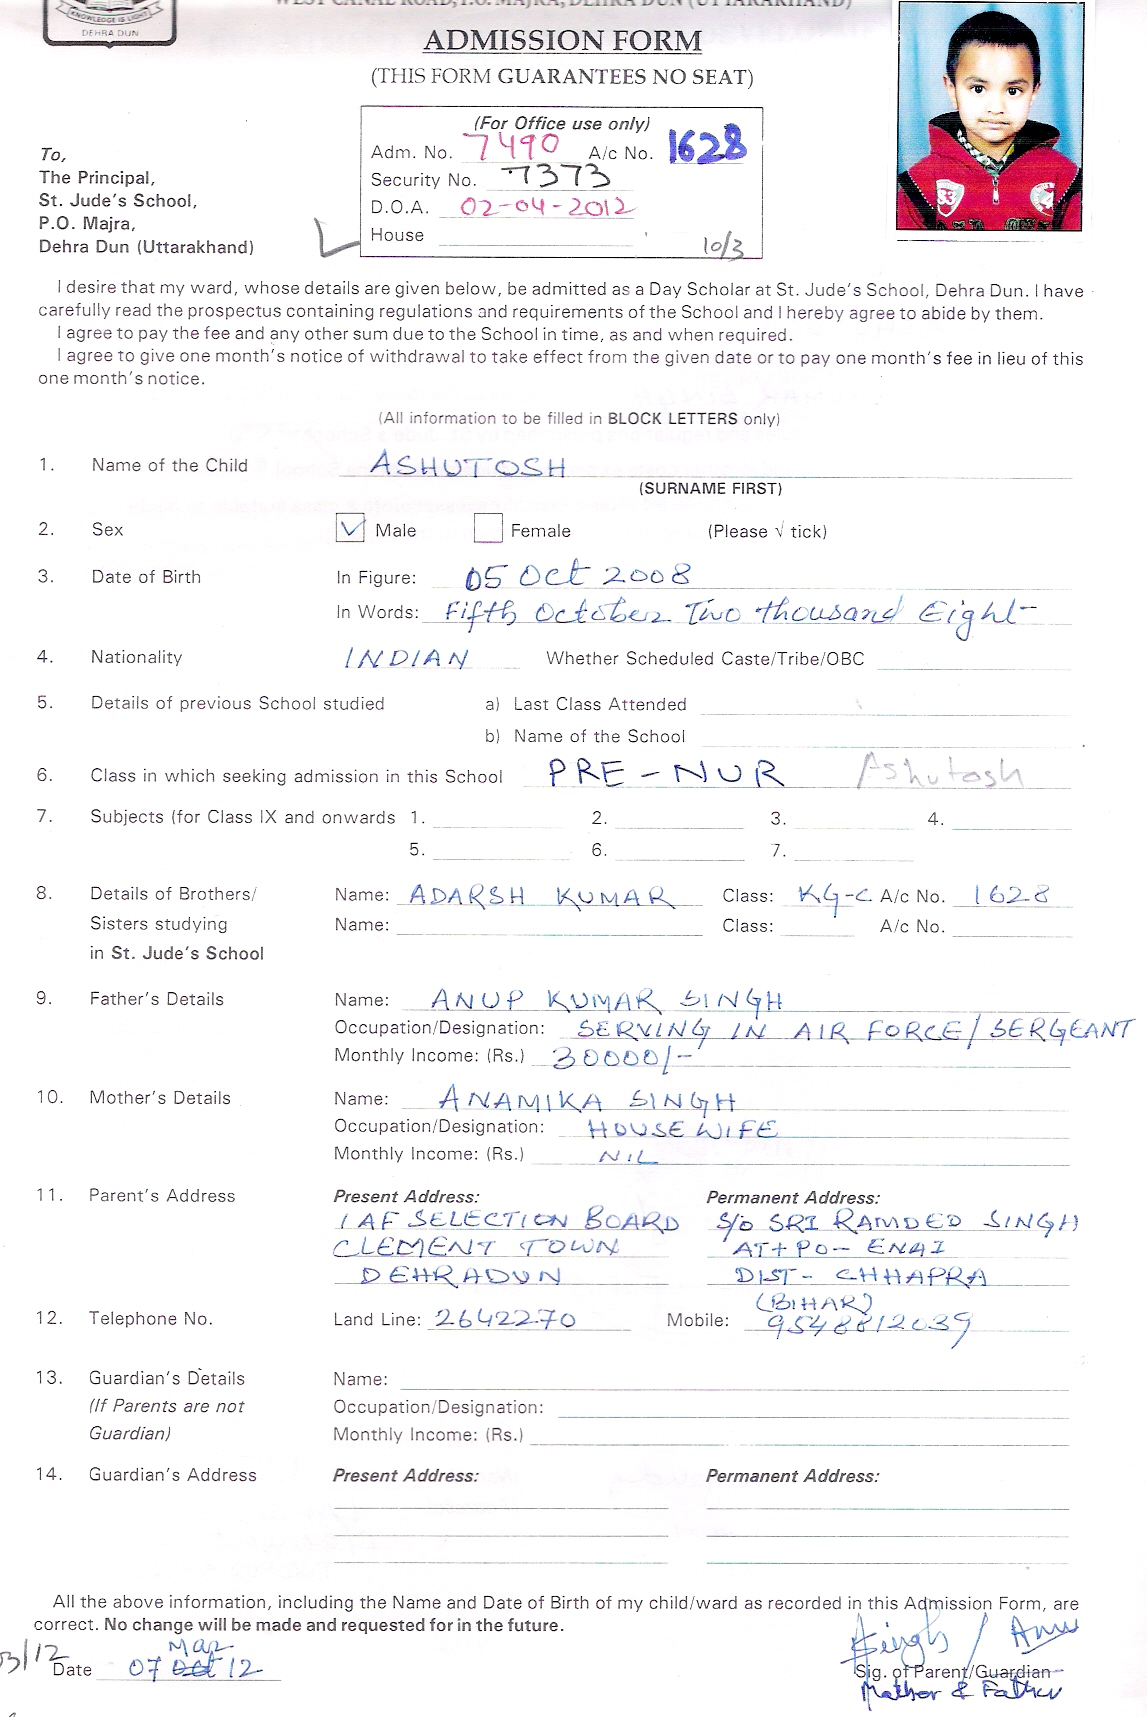 KNOWLEDGE IS LIGHT
DEHRA DUN
WEST CANAL ROAD, P.O. MAJRA, DEHRA DUN (UTTARAKHAND)
ADMISSION FORM
(THIS FORM GUARANTEES NO SEAT)
(For Office use only)
Adm. No. 7490 A/c No. 1628
Security No. 7373
D.O.A. 02-04-2012
House
10/3
To,
The Principal,
St. Jude's School,
P.O. Majra,
Dehra Dun (Uttarakhand)
I desire that my ward, whose details are given below, be admitted as a Day Scholar at St. Jude's School, Dehra Dun. I have
carefully read the prospectus containing regulations and requirements of the School and I hereby agree to abide by them.
I agree to pay the fee and any other sum due to the School in time, as and when required.
I agree to give one month's notice of withdrawal to take effect from the given date or to pay one month's fee in lieu of this
one month's notice.
(All information to be filled in BLOCK LETTERS only)
1. Name of the Child ASHUTOSH
(SURNAME FIRST)
2. Sex ✓ Male Female (Please √ tick)
3. Date of Birth In Figure: 05 Oct 2008
In Words: Fifth October Two thousand Eight
4. Nationality INDIAN Whether Scheduled Caste/Tribe/OBC
5. Details of previous School studied a) Last Class Attended
b) Name of the School
6. Class in which seeking admission in this School PRE-NUR Ashutosh
7. Subjects (for Class IX and onwards 1. 2. 3. 4.
5. 6. 7.
8. Details of Brothers/ Name: ADARSH KUMAR Class: KG-C A/c No. 1628
Sisters studying Name: Class: A/c No.
in St. Jude's School
9. Father's Details Name: ANUP KUMAR SINGH
Occupation/Designation: SERVING IN AIR FORCE/SERGEANT
Monthly Income: (Rs.) 30000/-
10. Mother's Details Name: ANAMIKA SINGH
Occupation/Designation: HOUSE WIFE
Monthly Income: (Rs.) NIL
11. Parent's Address Present Address: Permanent Address:
IAF SELECTION BOARD S/o SRI RAMDED SINGH
CLEMENT TOWN AT+PO- ENAI
DEHRADUN DIST- CHHAPRA
(BIHAR)
12. Telephone No. Land Line: 2642270 Mobile: 9548812039
13. Guardian's Details Name:
(If Parents are not Occupation/Designation:
Guardian) Monthly Income: (Rs.)
14. Guardian's Address Present Address: Permanent Address:
All the above information, including the Name and Date of Birth of my child/ward as recorded in this Admission Form, are
correct. No change will be made and requested for in the future.
03/12 Mar
Date 07 Oct 12
Singh / Anu
Sig. of Parent/Guardian
Mother & Father